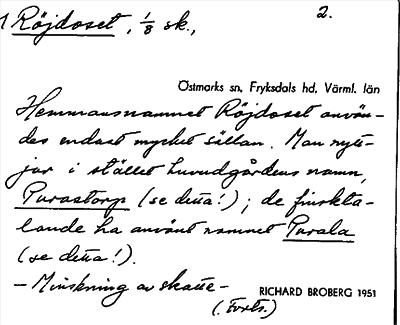 1 Röjdoset, 1/8 sk., 2.
Östmarks sn, Fryksdals hd, Värml. län
Hemmansnamnet Röjdoset använ-
des endast mycket sällan. Man nytt-
jar i stället huvudgårdens namn,
Purastorp (se detta!); de finskta-
lande ha använt namnet Purala
(se detta!).
– Minskning av skatte-
RICHARD BROBERG 1951
(. Forts.)